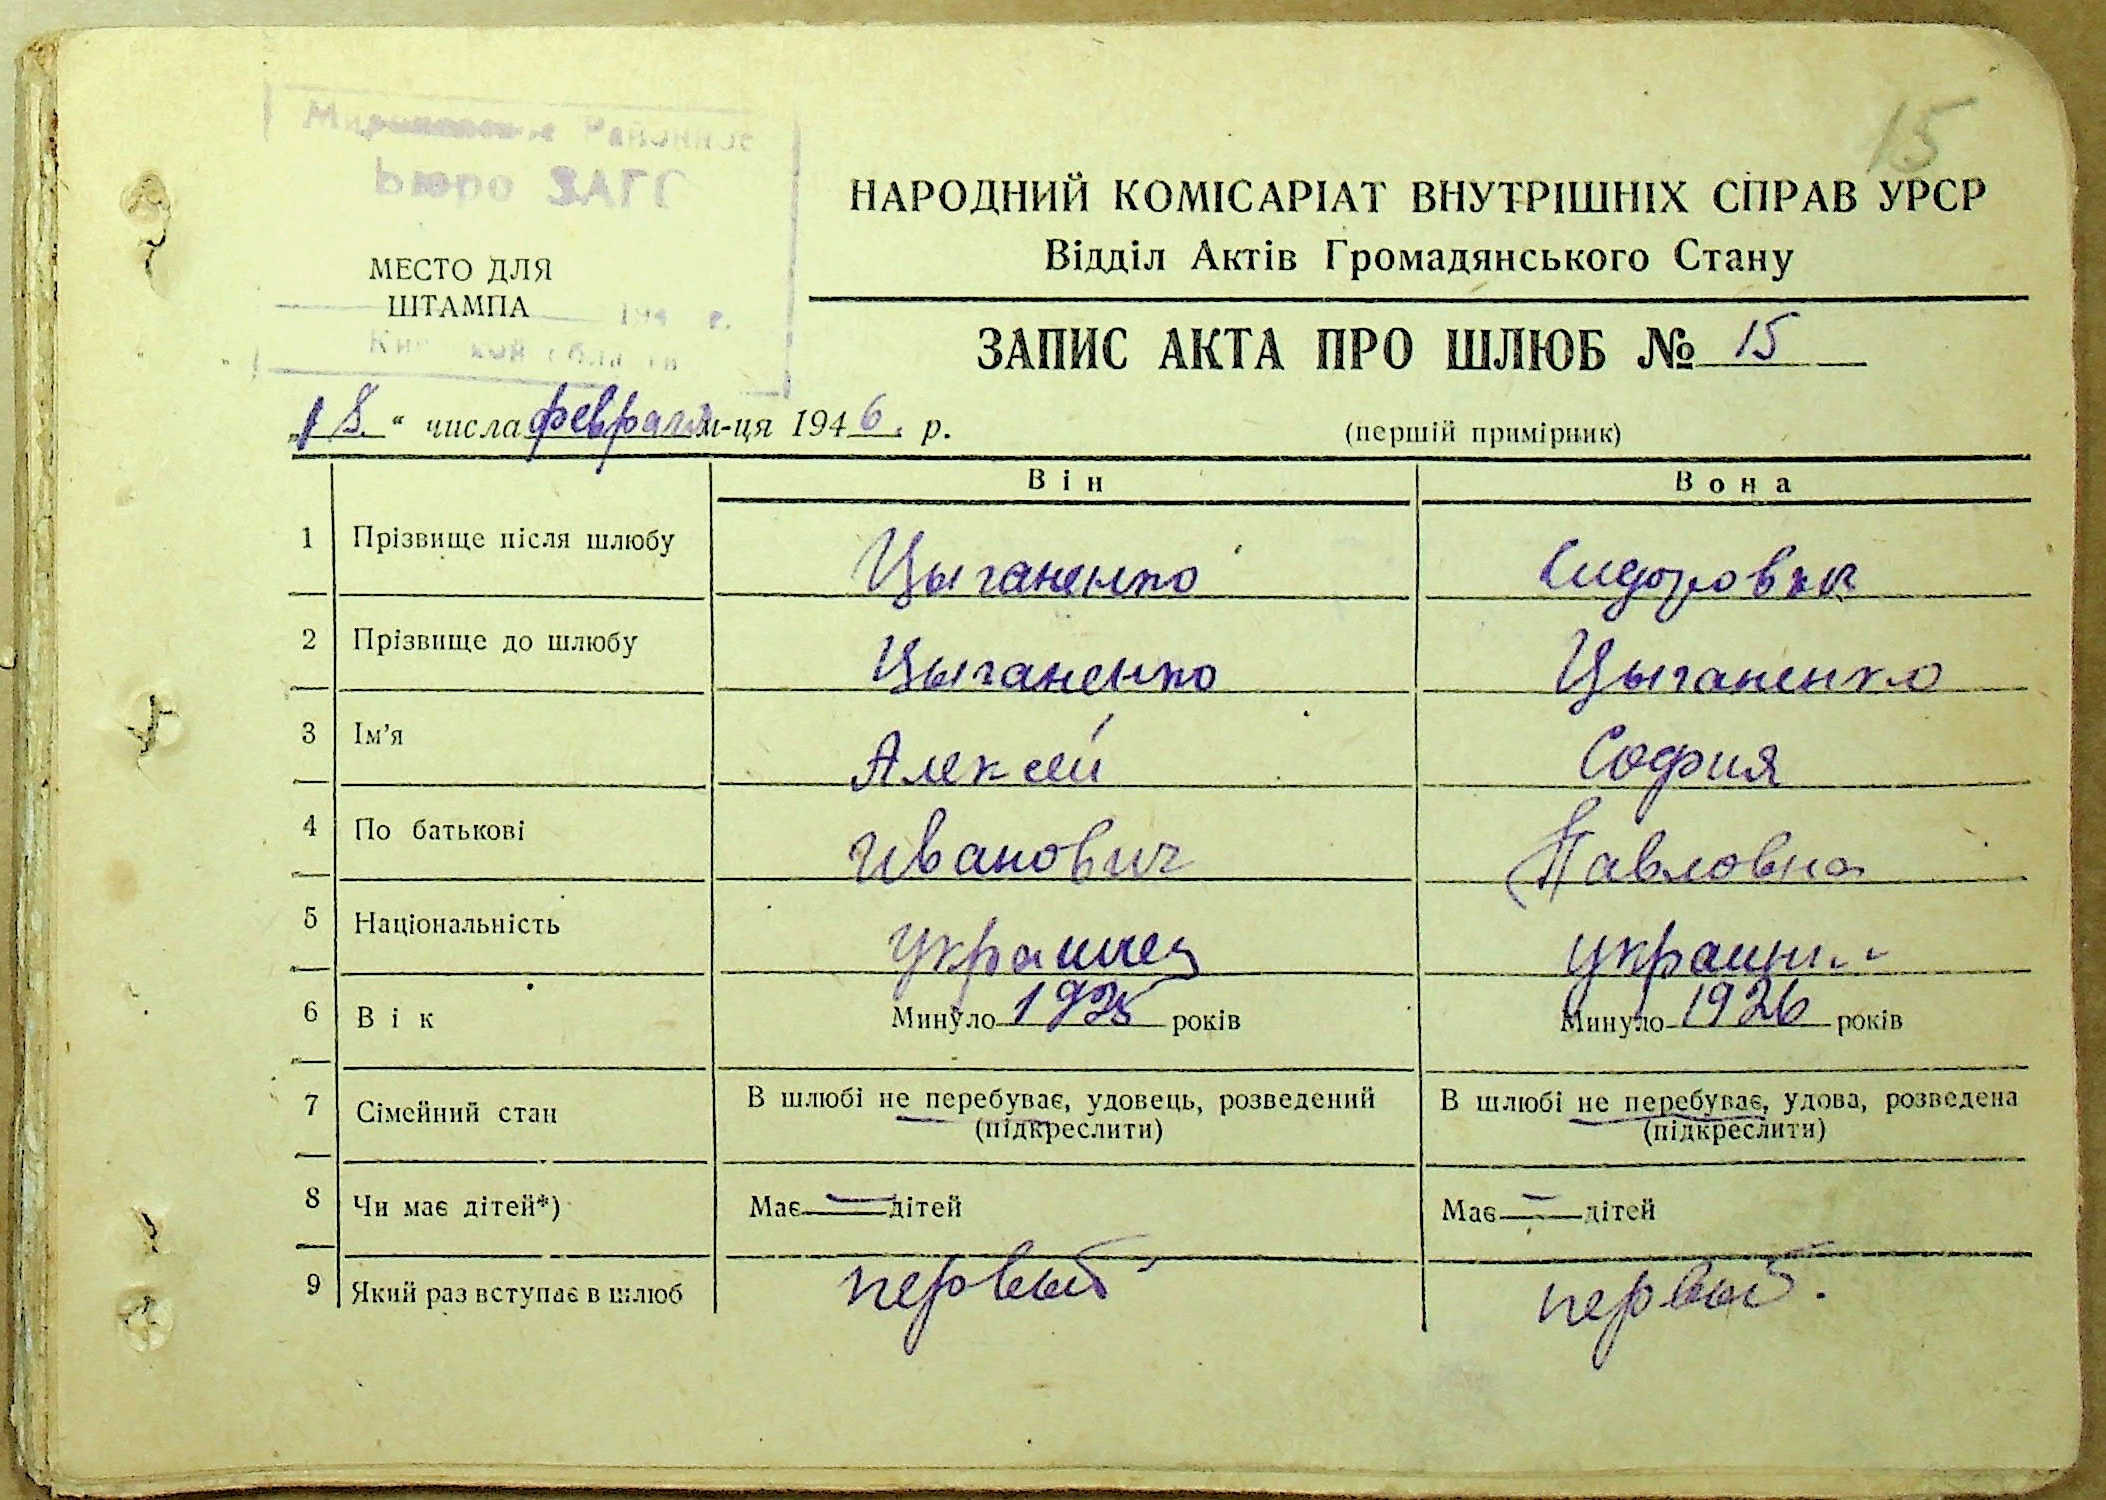 15
Районное
Бюро ЗАГС
МЕСТО ДЛЯ
ШТАМПА
194 г.
НАРОДНИЙ КОМІСАРІАТ ВНУТРІШНІХ СПРАВ УРСР
Відділ Актів Громадянського Стану
ЗАПИС АКТА ПРО ШЛЮБ № 15
„18“ числа февраля м-ця 1946. р.
(першій примірник)
Він Вона
1 Прізвище після шлюбу Цыганенко
2 Прізвище до шлюбу Цыганенко Цыганенко
3 Ім'я Алексей София
4 По батькові Иванович Павловна
5 Національність украинец
6 Вік Минуло 1925 років Минуло 1926 років
7 Сімейний стан В шлюбі не перебуває, удовець, розведений В шлюбі не перебуває, удова, розведена
(підкреслити) (підкреслити)
8 Чи має дітей*) Має — дітей Має — дітей
9 Який раз вступає в шлюб первый первый.